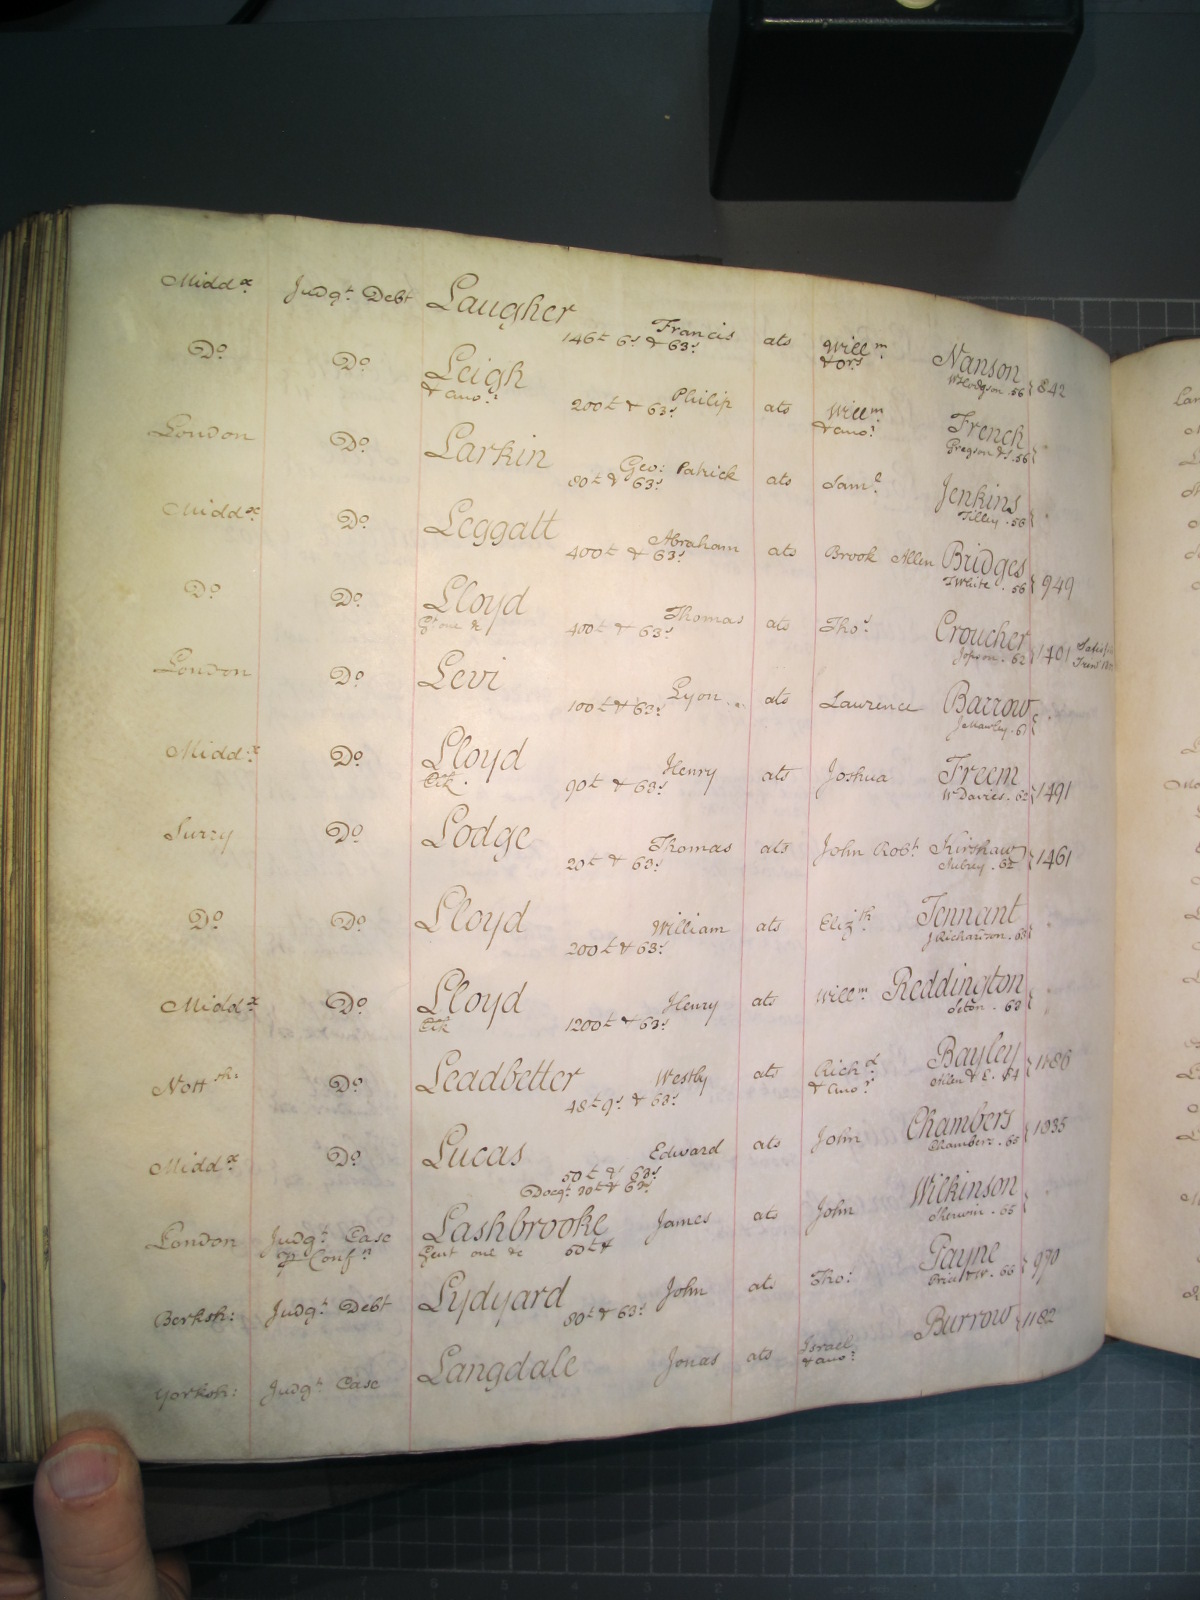 Midd.x Judg.t Debt Laugher Francis ats Will.m Nanson
146£ 6s & 63s & or.s W Hodgson . 56 842
D.o D.o Leigh Philip ats Will.m French
& ano.r 200£ & 63s & ano.r Gregson & S . 56
London D.o Larkin Geo: Patrick ats Sam.l Jenkins
80£ & 63s Tilley . 56
Midd.x D.o Leggatt Abraham ats Brook Allen Bridges
400£ & 63s T White . 56 949
D.o D.o Lloyd Thomas ats Tho.s Croucher
G.t one &c 400£ & 63s Jopson . 62 1401
London D.o Levi Lyon ats Laurence Barrow
100£ & 63s
Midd.x D.o Lloyd Henry ats Joshua Freem
Clk . 90£ & 63s W Davies . 62 1491
Surry D.o Lodge Thomas ats John Rob.t Kirshaw
20£ & 63s Aubrey . 62 1461
D.o D.o Lloyd William ats Eliz.th Tennant
200£ & 63s J Richardson . 63
Midd.x D.o Lloyd Henry ats Will.m Reddington
Clk 1200£ & 63s Seton . 63
Nott.sh: D.o Leadbetter Westby ats Rich.d Bayley
48£ 9s & 63s & ano.r Allen & E . 64 1486
Midd.x D.o Lucas Edward ats John Chambers
50£ & 63s Chambers . 65 1035
Docq.t 30£ & 63s
London Judg.t Case Lashbrooke James ats John Wilkinson
p Conf.n Gent one &c 60£ & Sherwin . 65
Berksh: Judg.t Debt Lydyard John ats Tho: Payne
80£ & 63s Price & W . 66 970
Yorksh: Judg.t Case Langdale Jonas ats Israel Burrow 1182
& ano.r